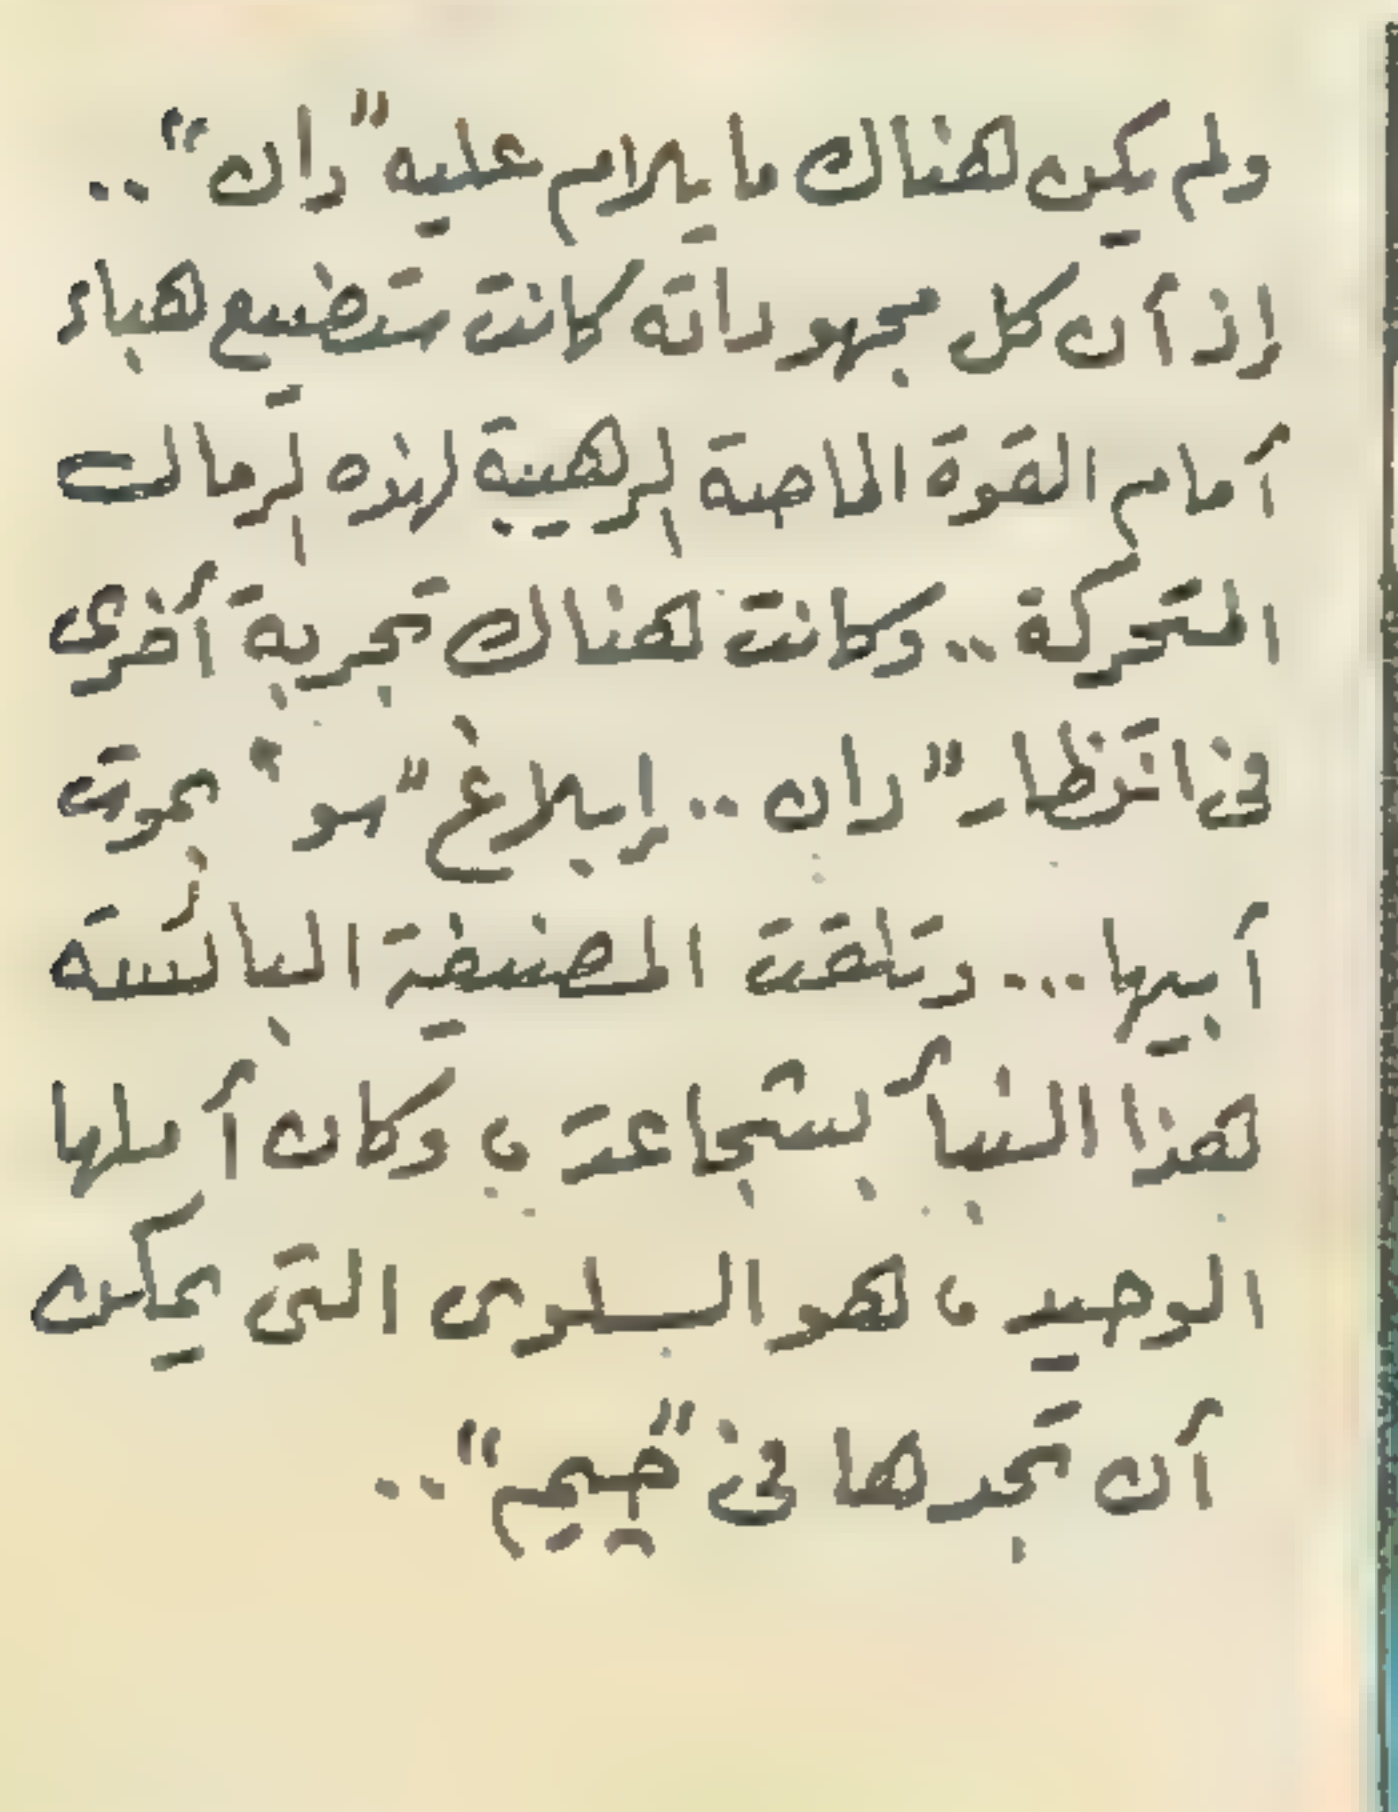 ولم يكن هناك ما يلام عليه "دان"..
إذ أن كل مجهوداته كانت ستضيع هباء
أمام القوة الماصة الرهيبة لهذه الرمال
المتحركة .. وكانت هناك تجربة أخرى
فى انتظار "دان .. إبلاغ "سو" بموت
أبيها ... وتلقت المضيفة البائسة
هذا النبأ بشجاعة ، وكان أملها
الوحيد ، هو السلوى التى يمكن
أن تجدها فى "جيم"..